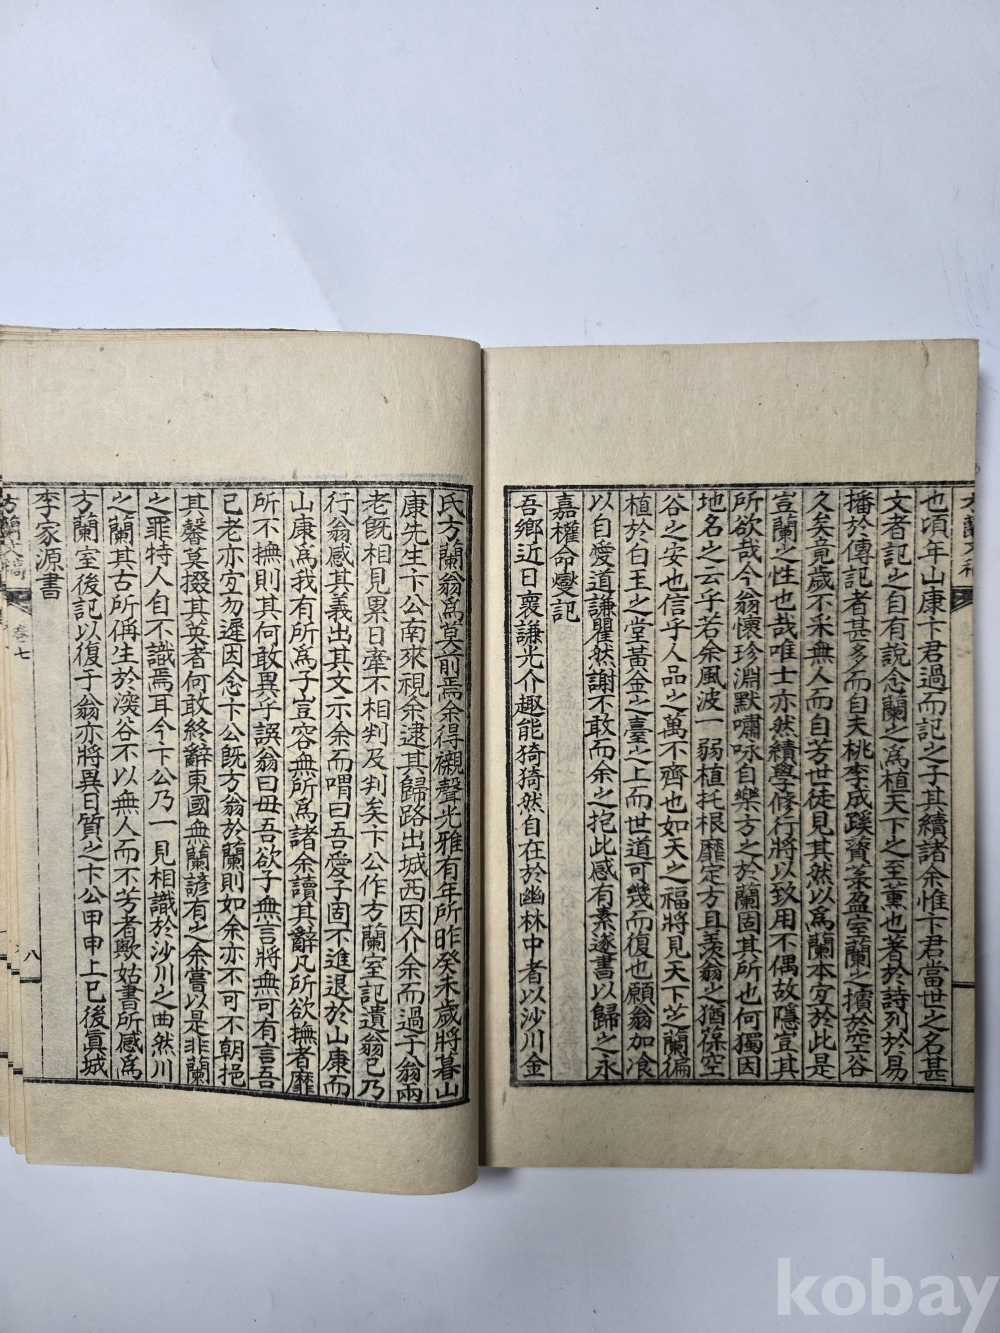 也頃年山康卞君過而記之子其續諸余惟卞君當世之名甚
文者記之自有說念蘭之爲植天下之至薰也著於詩列於易
播於傳記者甚多而自夭桃李成蹊薋菉盈室蘭之擯於空谷
久矣竟歲不采無人而自芳世徒見其然以爲蘭本宜於此是
豈蘭之性也哉唯士亦然績學修行將以致用不偶故隱豈其
所欲哉今翁懷珍淵默嘯咏自樂方之於蘭固其所也何獨因
地名之云乎若余風波一弱植托根靡定方且羨翁之猶葆空
谷之安也信乎人品之萬不齊也如天之福將見天下芝蘭徧
植於白玉之堂黃金之臺之上而世道可幾而復也願翁加飡
以自愛道謙瞿然謝不敢而余之抱此感有素遂書以歸之永
嘉權命燮記
吾鄉近日裵謙光介趣能猗猗然自在於幽林中者以沙川金
氏方蘭翁爲莫前焉余得襯聲光雅有年所昨癸未歲將暮山
康先生卞公南來視余逮其歸路出城西因介余而過于翁兩
老旣相見累日牽不相判及判矣卞公作方蘭室記遺翁已乃
行翁感其義出其文示余而喟曰吾愛子固不進退於山康而
山康爲我有所爲子豈容無所爲諸余讀其辭凡所欲撫者靡
所不撫則其何敢異乎誤翁曰毋吾欲子無言將無可有言吾
已老亦宜勿遲因念卞公旣方翁於蘭則如余亦不可不朝挹
其馨暮掇其英者何敢終辭東國無蘭諺有之余嘗以是非蘭
之罪特人自不識焉耳今卞公乃一見相識於沙川之曲然川
之蘭其古所偁生於溪谷不以無人而不芳者歟姑書所感爲
方蘭室後記以復于翁亦將異日質之卞公甲申上巳後眞城
李家源書
卷七
八
kobay